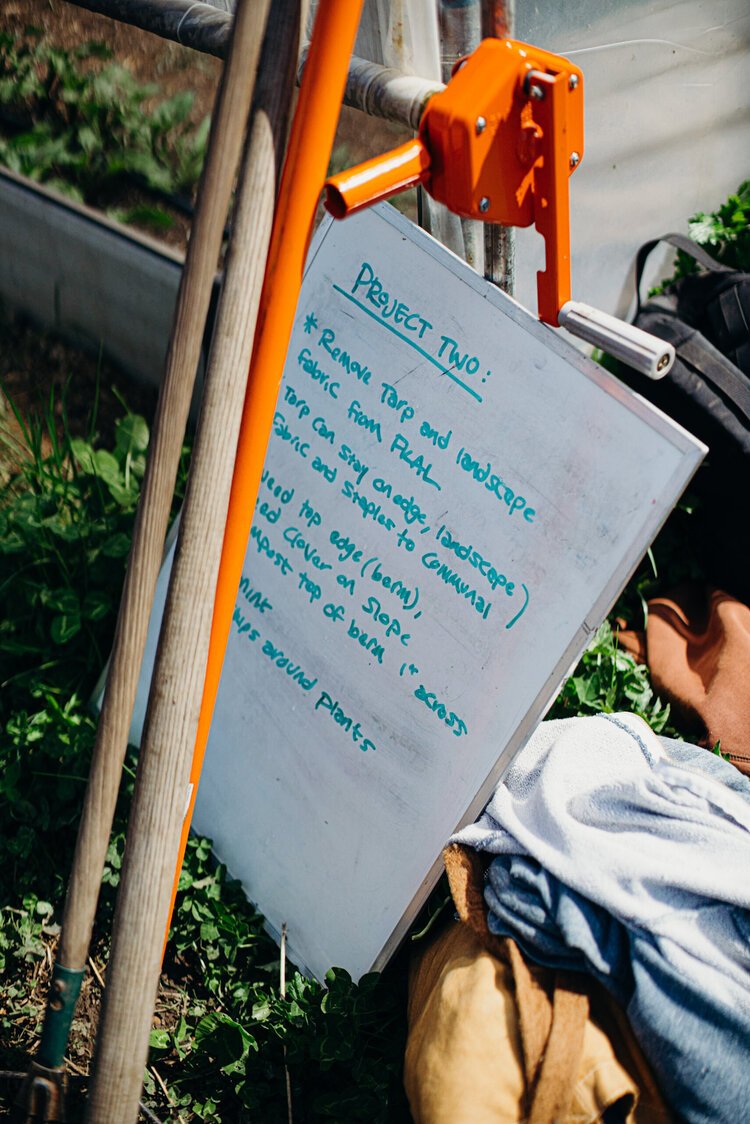 PROJECT TWO:
* Remove Tarp and landscape
fabric from FKAL
Tarp can stay on edge, landscape)
fabric and staples to communal
top edge (berm),
Clover on slope
top of berm 1" across
around plants